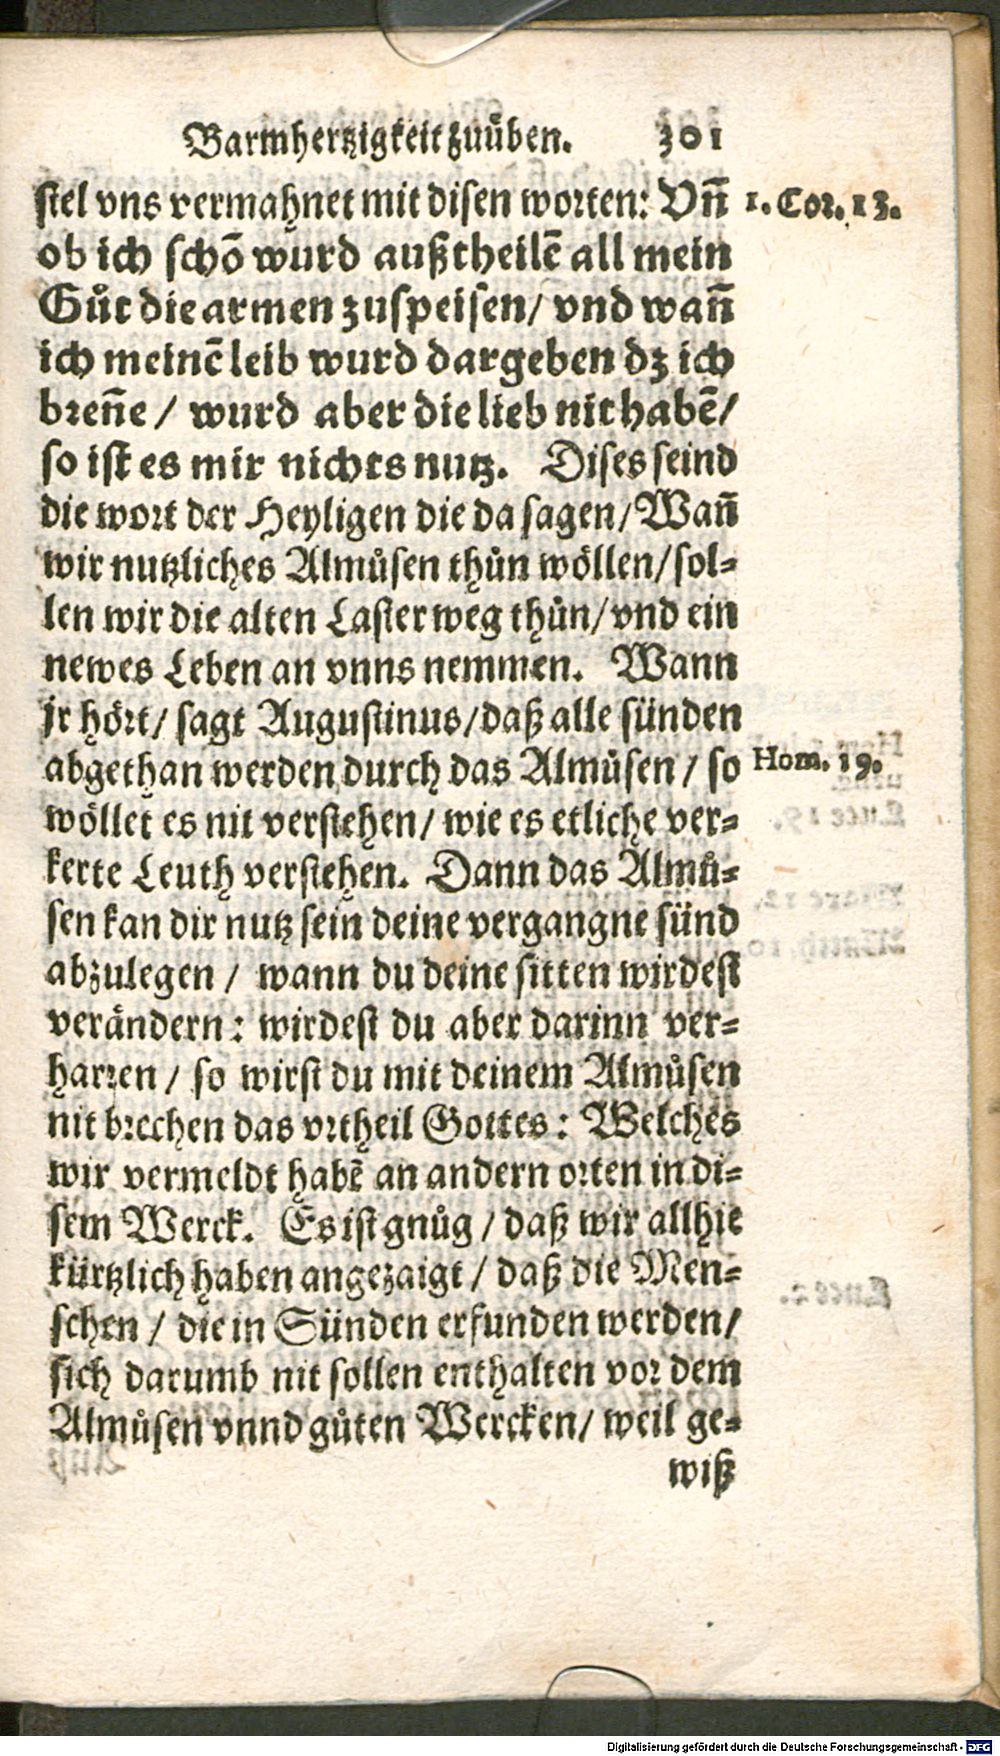 Barmhertzigkeit zuüben. 301
stel vns vermahnet mit disen worten: Vñ
1. Cor. 13.
ob ich schõ wurd außtheilẽ all mein
Gůt die armen zuspeisen/ vnd wañ
ich meinẽ leib wurd dargeben dz ich
breñe/ wurd aber die lieb nit habẽ/
so ist es mir nichts nutz. Dises seind
die wort der Heyligen die da sagen/ Wañ
wir nutzliches Almůsen thůn wöllen/ sol-
len wir die alten Laster weg thůn/ vnd ein
newes Leben an vnns nemmen. Wann
jr hört/ sagt Augustinus/ daß alle sünden
abgethan werden durch das Almůsen/ so
Hom. 19.
wöllet es nit verstehen/ wie es etliche ver-
kerte Leuth verstehen. Dann das Almů-
sen kan dir nutz sein deine vergangne sünd
abzulegen/ wann du deine sitten wirdest
verändern: wirdest du aber darinn ver-
harren/ so wirst du mit deinem Almůsen
nit brechen das vrtheil Gottes: Welches
wir vermeldt habẽ an andern orten in di-
sem Werck. Es ist gnůg/ daß wir allhie
kürtzlich haben angezaigt/ daß die Men-
schen/ die in Sünden erfunden werden/
sich darumb nit sollen enthalten vor dem
Almůsen vnnd gůten Wercken/ weil ge-
wiß
Digitalisierung gefördert durch die Deutsche Forschungsgemeinschaft - DFG